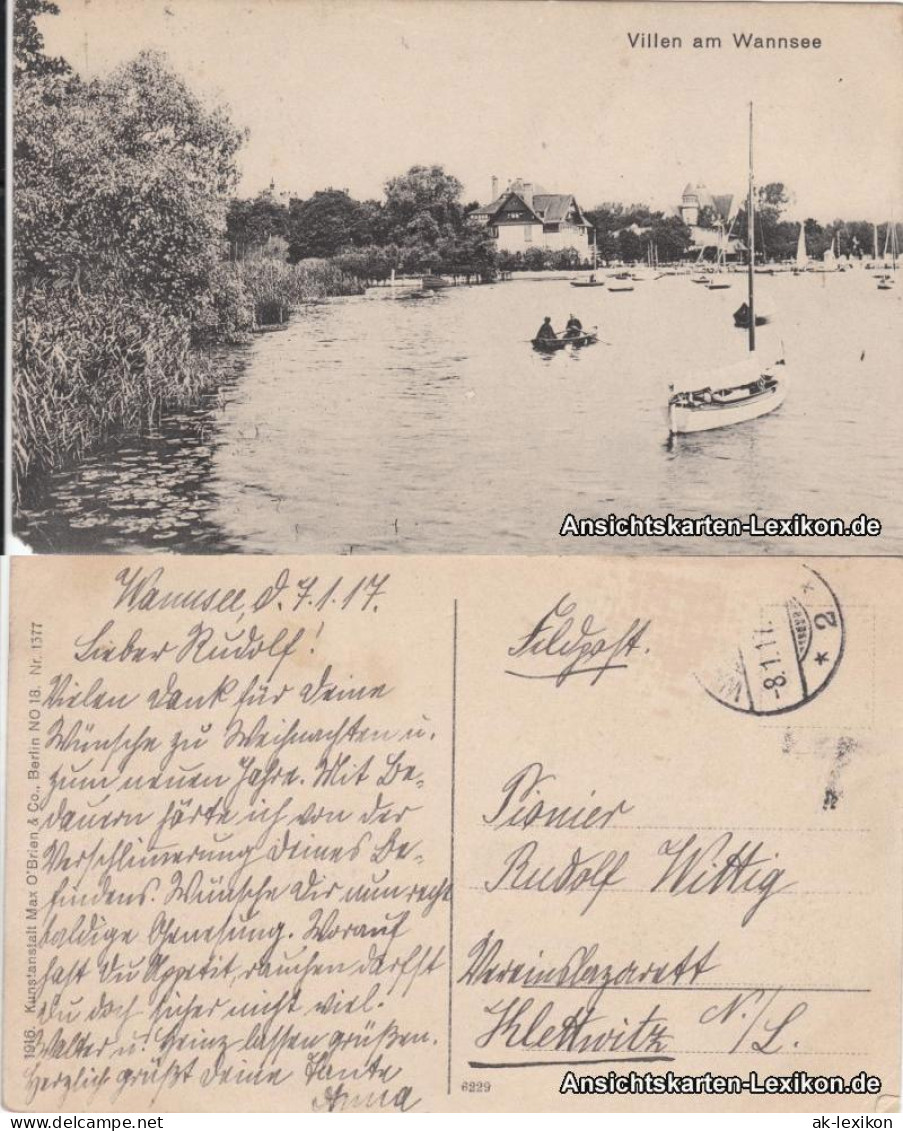 Villen am Wannsee
Ansichtskarten-Lexikon.de
Wannsee, d. 7.1.17.
Lieber Rudolf!
Vielen Dank für Deine
Wünsche zu Weihnachten u.
zum neuen Jahre. Mit Be-
dauern hörte ich von der
Verschlimmerung Deines Be-
findens. Wünsche Dir nun recht
baldige Genesung. Worauf
hast Du Appetit, rauchen darfst
Du doch sicher nicht viel.
Walter u. Heinz lassen grüßen.
Herzlich grüßt Deine Tante
Anna
1916. Kunstanstalt Max O'Brien & Co., Berlin NO 18. Nr. 1377
Feldpost.
-8.1.17.
* 2 *
Pionier
Rudolf Wittig
Vereinslazarett
Klettwitz N./L.
6229
Ansichtskarten-Lexikon.de
ak-lexikon